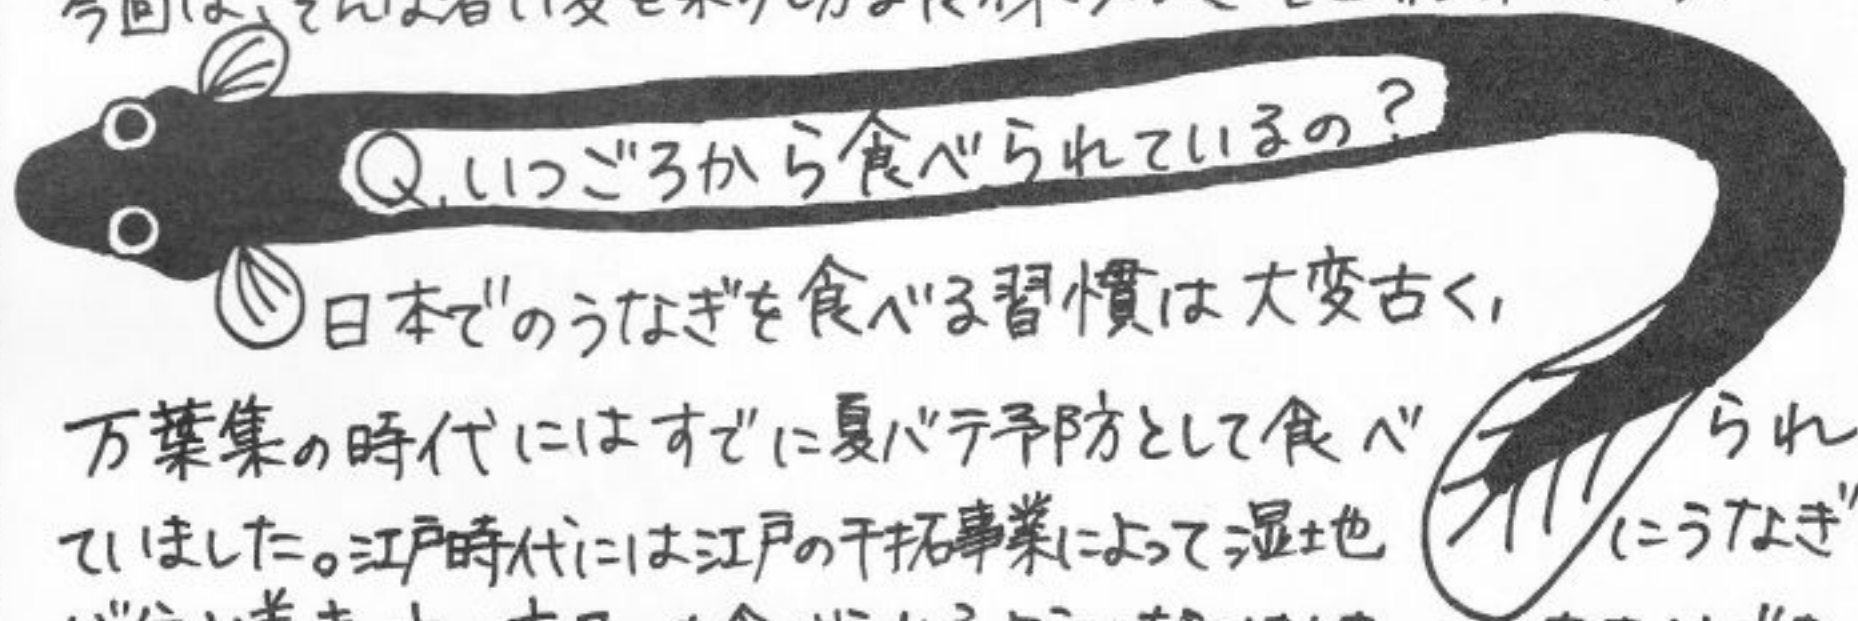 今回は、そんな暑い夏を乗り切
Q.いつごろから食べられているの？
日本でのうなぎを食べる習慣は大変古く,
万葉集の時代にはすでに夏バテ予防として食べられ
ていました。江戸時代には江戸の干拓事業によって湿地にうなぎ